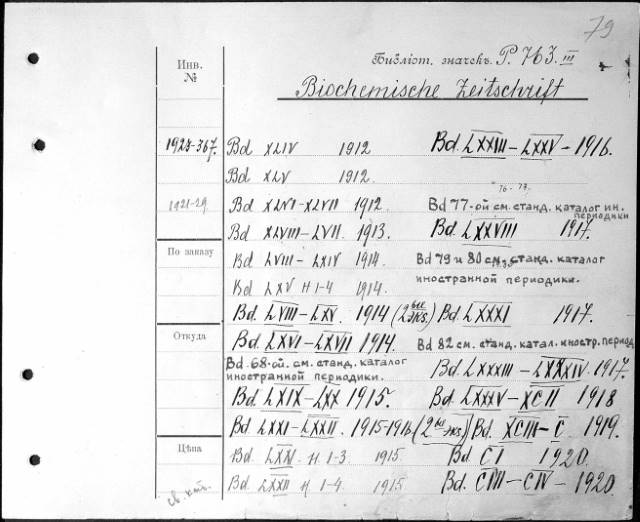 79
Инв. №
Библіот. значекъ P. 763. III
Biochemische Zeitschrift
1928-367.
Bd XLIV 1912
Bd. LXXIII–LXXV – 1916.
Bd XLV 1912.
1921-29
Bd XLVI-XLVII 1912.
Bd 77-ой см. станд. каталог ин. периодики
Bd XLVIII–LVII. 1913.
Bd. LXXVIII 1917.
По заказу
Bd LVIII–LXIV 1914.
Bd 79 и 80 см. станд. каталог
Bd LXV H 1-4 1914.
иностранной периодики.
Bd. LVIII–LXV. 1914 (2 экз.)
Bd. LXXXI 1917.
Откуда
Bd. LXVI–LXVII 1914.
Bd 82 см. станд. катал. иностр. период
Bd. 68-ой. см. станд. каталог
иностранной периодики.
Bd. LXXXIII – LXXXIV. 1917.
Bd LXIX–LXX 1915.
Bd. LXXXV – XCII 1918
Bd. LXXI–LXXII. 1915-1916 (2 экз.)
Bd. XCIII–C. 1919.
Цѣна
Bd. LXXI. H. 1-3 1915
Bd. CI 1920.
Bd. LXXII H 1-4. 1915
Bd. CIII–CIV – 1920.